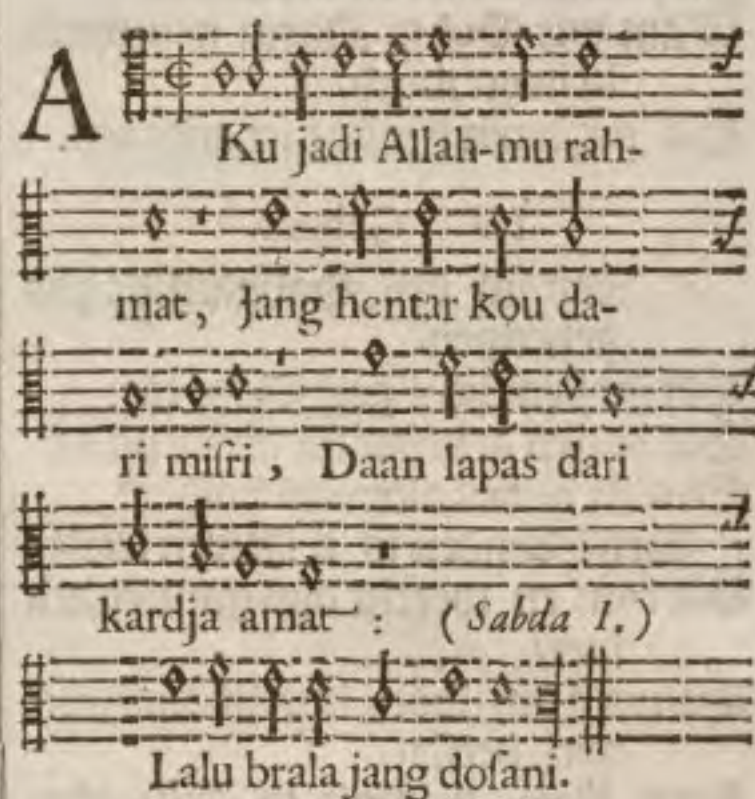 AKu jadi Allah-mu rah-
mat, Jang hentar kou da-
ri miſri, Daan lapas dari
kardja amat: (Sabda I.)
Lalu brala jang doſani.